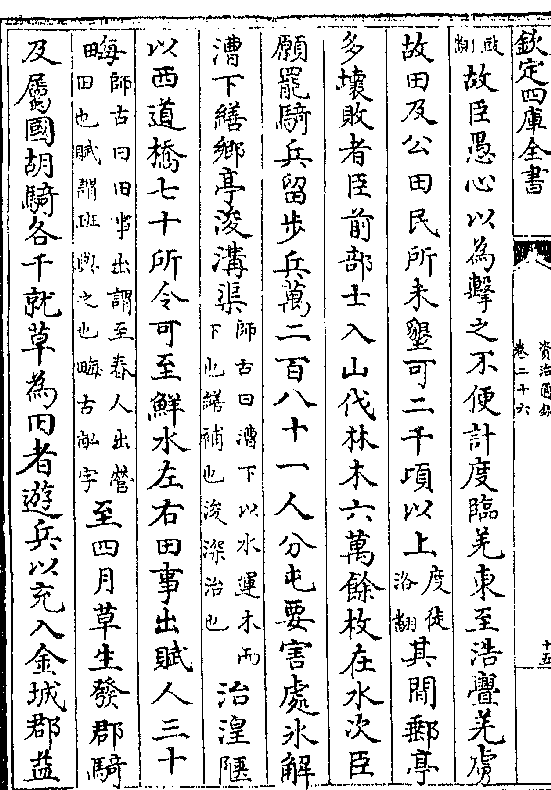 欽定四庫全書
卷二十六
十五
翻 故臣愚心以為擊之不便計度臨羌東至浩亹羌虜
故田及公田民所未墾可二千頃以上度徒洛翻其間郵亭
多壞敗者臣前部士入山伐林木六萬餘枚在水次臣
願罷騎兵留步兵萬二百八十一人分屯要害處氷解
漕下繕鄉亭浚溝渠師古曰漕下以水運木而下也繕補也浚深治也治湟陿
以西道橋七十所令可至鮮水左右田事出賦人三十
畮師古曰田事出謂至春人出營田也賦謂班與之也畮古畝字至四月草生發郡騎
及屬國胡騎各千就草為田者遊兵以充入金城郡益